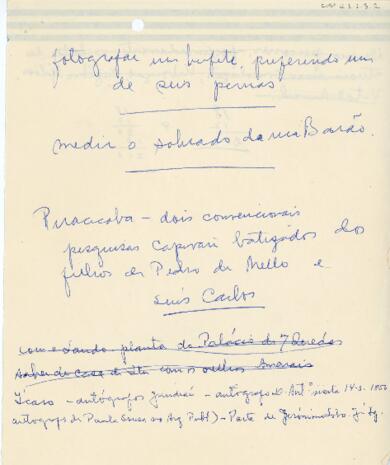 fotografar um bufete, preferindo um
de seis pernas
medir o sobrado da rua Barão
Piracicaba – dois convencionais
pesquisas Capivari batizados dos
filhos de Pedro de Mello e
Luis Carlos
planta do Palácio de 7
saber de casa de Itu com os outros
Ícaro – autógrafos Jundiaí – autógrafo D. Antº 14-3-1850
autógrafo de Paula Souza no Arq Publ) – Pasta de Jerônimo